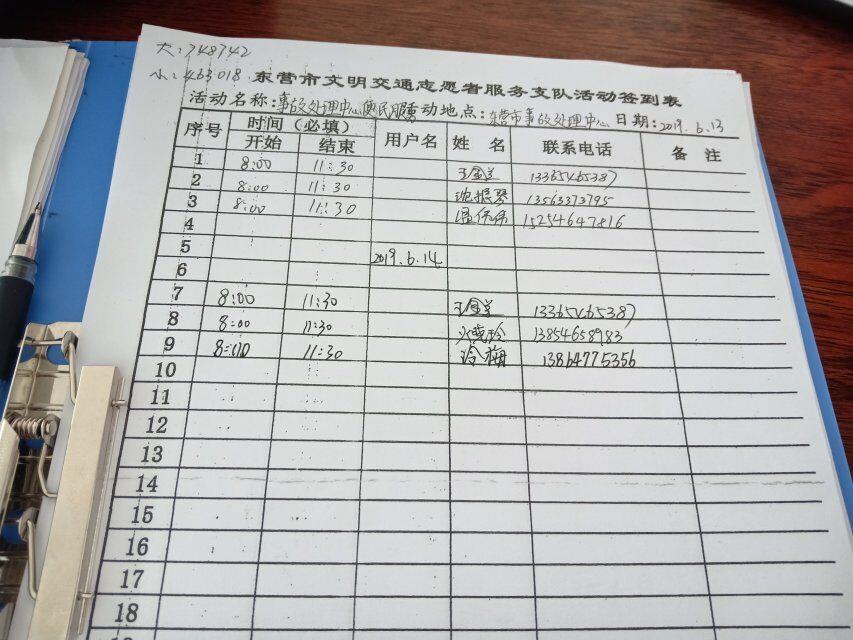 大:748742
小:463018
东营市文明交通志愿者服务支队活动签到表
活动名称:事故处理中心便民服务 活动地点:东营市事故处理中心 日期:2019.6.13
序号 时间(必填) 用户名 姓 名 联系电话 备 注
开始 结束
1 8:00 11:30 13365465387
2 8:00 11:30 沈振琴 13563373795
3 8:00 11:30 15254647816
4
5 2019.6.14
6
7 8:00 11:30 13365465387
8 8:00 11:30 13854658983
9 8:00 11:30 冷梅 13864775356
10
11
12
13
14
15
16
17
18